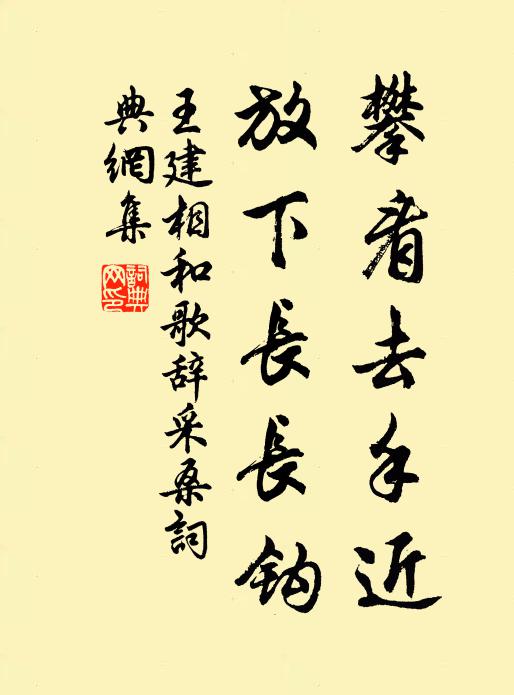 攀看去手近
放下長長鈎
王建相和歌辞采桑詞
典網集
詞典網印